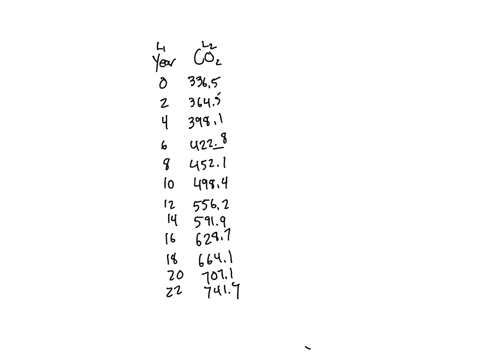 L1 L2
Year CO2
0 336.5
2 364.5
4 398.1
6 422.8
8 452.1
10 498.4
12 556.2
14 591.9
16 628.7
18 664.1
20 707.1
22 741.7